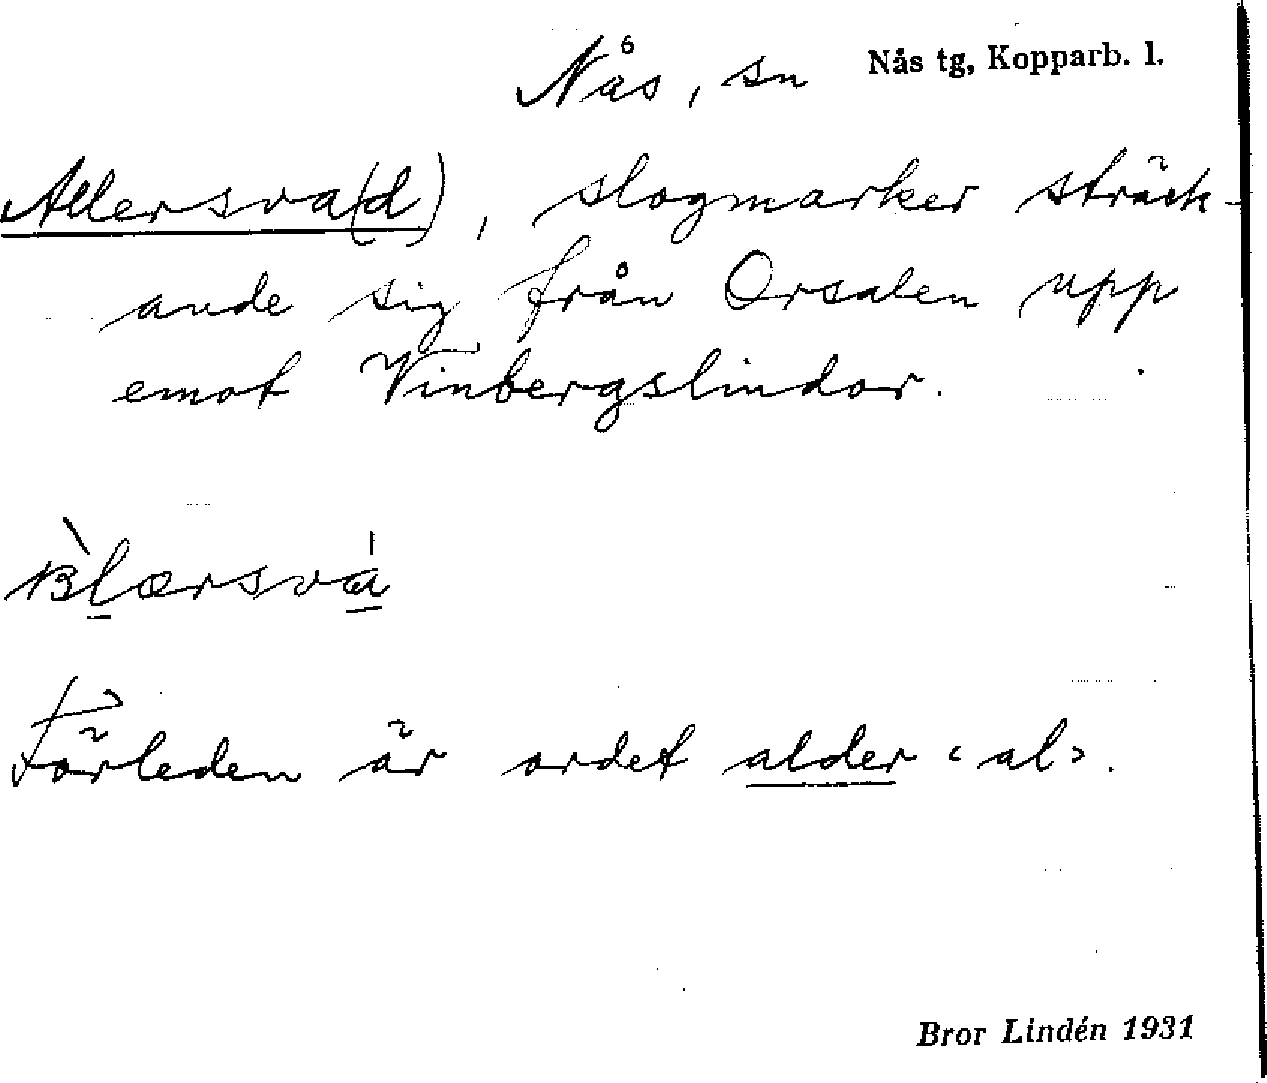 Nås, sn Nås tg, Kopparb. l.
Allersva(d), slogmarker sträck-
ande sig från Orsalen upp
emot Vinbergslindor.
Förleden är ordet alder ‹al›.
Bror Lindén 1931